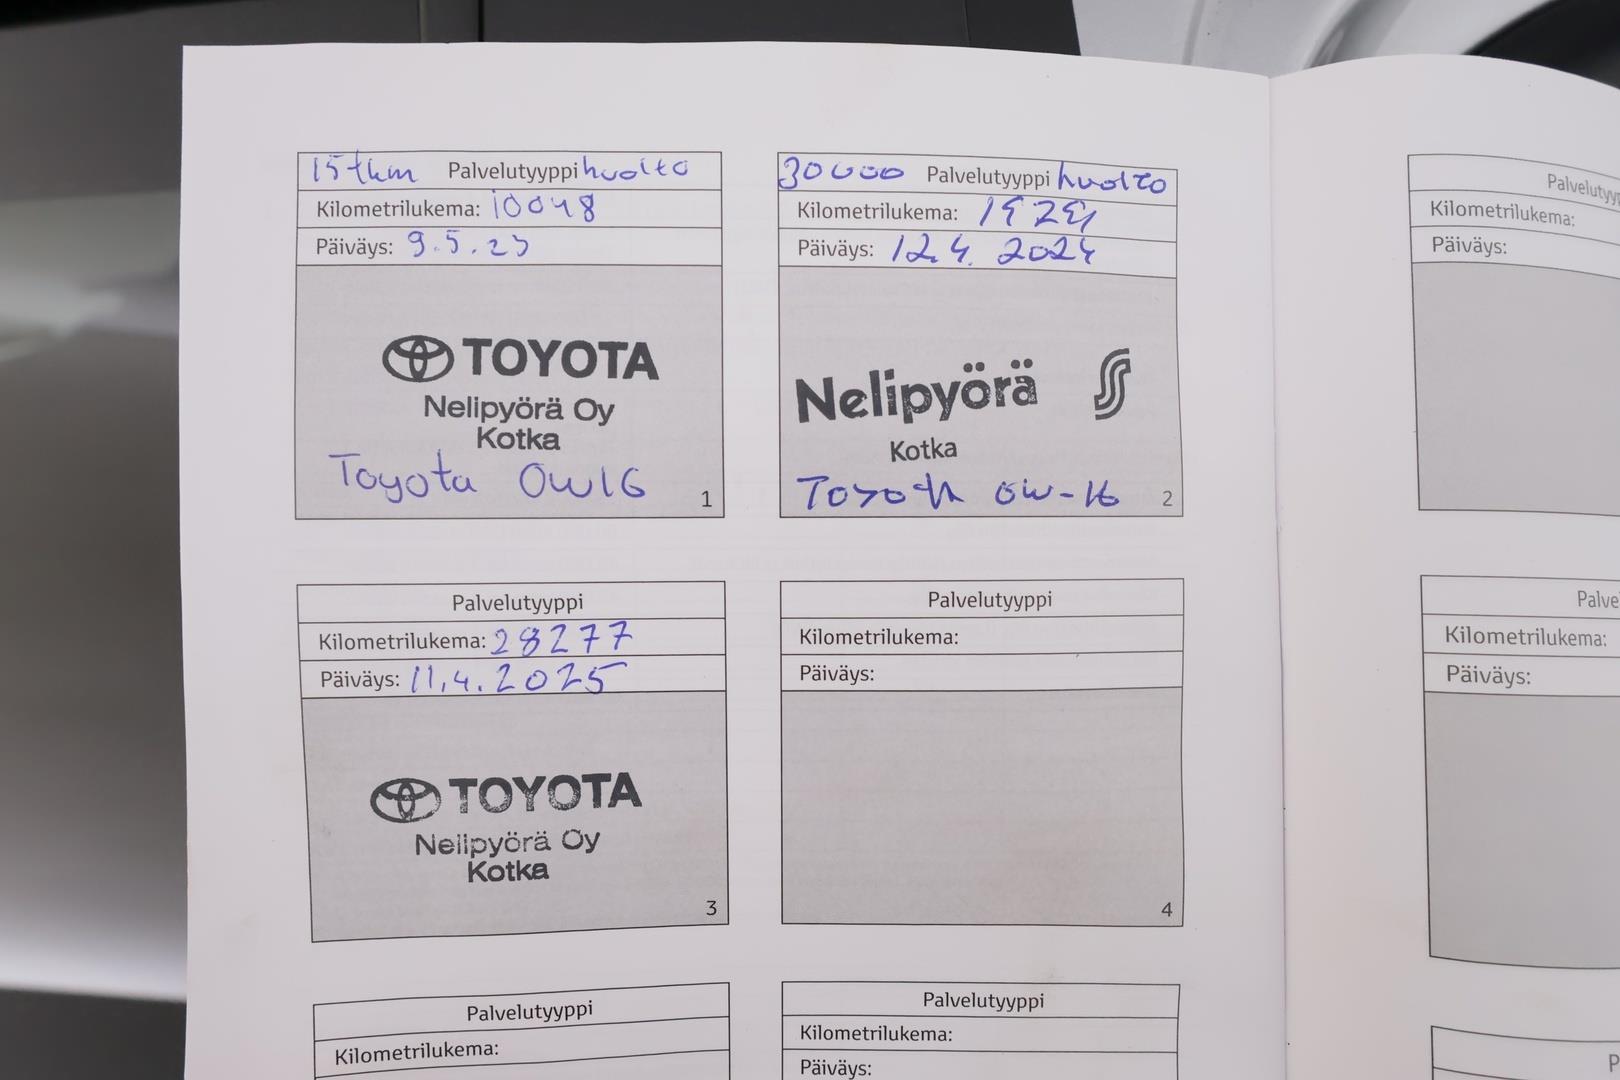 15 tkm Palvelutyyppi huolto
Kilometrilukema: 10048
Päiväys: 9.5.23
TOYOTA
Nelipyörä Oy
Kotka
Toyota 0W16
1
30000 Palvelutyyppi huolto
Kilometrilukema:
Päiväys: 12.4.2024
Nelipyörä S
Kotka
Toyota 0W-16
2
Palvelutyyppi
Kilometrilukema: 28277
Päiväys: 11.4.2025
TOYOTA
Nelipyörä Oy
Kotka
3
Palvelutyyppi
Kilometrilukema:
Päiväys:
4
Palvelutyyppi
Kilometrilukema:
Palvelutyyppi
Kilometrilukema:
Päiväys:
Palvelutyyp
Kilometrilukema:
Päiväys:
Palve
Kilometrilukema:
Päiväys:
P